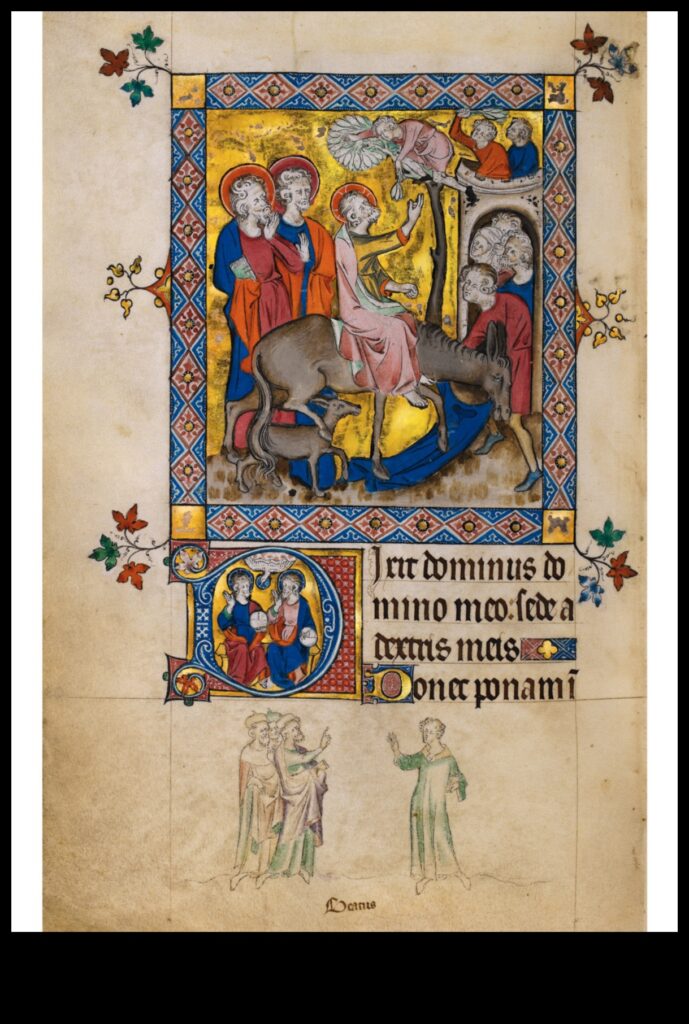 Dixit dominus do
mino meo: sede a
dextris meis
Donec ponam i
Beatus